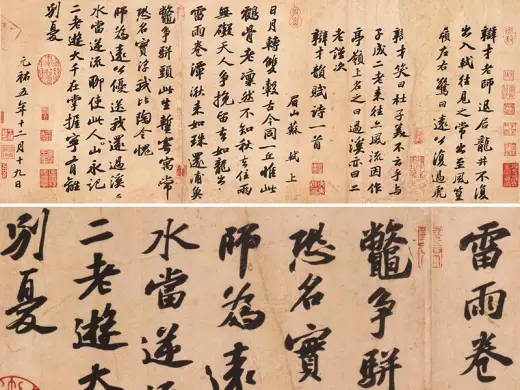 辯才老師退居龍井不復
出入軾往見之常出至風篁
嶺左右驚曰遠公復過虎
辯才笑曰杜子美不云乎與
子成二老來往亦風流因作
亭嶺上名之曰過溪亦曰二
老謹次
辯才韻賦詩一首
眉山蘇軾上
日月轉雙轂古今同一丘惟此
鶴骨老凜然不知秋去住兩
無礙天人爭挽留去如龍出
雷雨卷潭湫來如珠還浦魚
鱉爭駢頭此生暫寄寓常
恐名實浮我比陶令愧
師為遠公優送我還過溪溪
水當逆流聊使此人山永記
二老遊大千在掌握寧有離
別憂
元祐五年十二月十九日
雷雨卷
鱉爭駢
恐名實
師為遠
水當逆
二老遊大
別憂